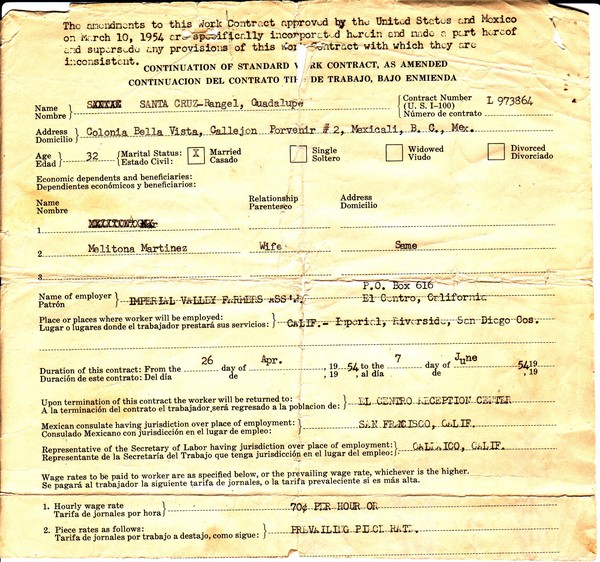 The amendments to this Work Contract approved by the United States and Mexico
on March 10, 1954 are specifically incorporated herein and made a part hereof
and supersede any provisions of this Work Contract with which they are
inconsistent.
CONTINUATION OF STANDARD WORK CONTRACT, AS AMENDED
CONTINUACION DEL CONTRATO TIPO DE TRABAJO, BAJO ENMIENDA
Name
Nombre } SANTA CRUZ-Rangel, Guadalupe
Contract Number
(U. S. I-100)
Número de contrato } L 973864
Address
Domicilio } Colonia Bella Vista, Callejon Porvenir # 2, Mexicali, B. C., Mex.
Age
Edad } 32 { Marital Status:
Estado Civil: } X Married
Casado
Single
Soltero
Widowed
Viudo
Divorced
Divorciado
Economic dependents and beneficiaries:
Dependientes económicos y beneficiarios:
Name
Nombre
Relationship
Parentesco
Address
Domicilio
1
2 Melitona Martinez Wife Same
3
Name of employer
Patrón } IMPERIAL VALLEY FARMERS ASS'N,
P.O. Box 616
El Centro, California
Place or places where worker will be employed:
Lugar o lugares donde el trabajador prestará sus servicios: } CALIF.- Imperial, Riverside, San Diego Cos.
Duration of this contract: From the 26 day of Apr., 19 54 to the 7 day of June 54 19
Duración de este contrato: Del día de , 19 , al día de 19
Upon termination of this contract the worker will be returned to:
A la terminación del contrato el trabajador será regresado a la poblacion de: } EL CENTRO RECEPTION CENTER
Mexican consulate having jurisdiction over place of employment:
Consulado Mexicano con jurisdicción en el lugar de empleo: } SAN FRACISCO, CALIF.
Representative of the Secretary of Labor having jurisdiction over place of employment:
Representante de la Secretaría del Trabajo que tenga jurisdicción en el lugar del empleo: } CALEXICO, CALIF.
Wage rates to be paid to worker are as specified below, or the prevailing wage rate, whichever is the higher.
Se pagará al trabajador la siguiente tarifa de jornales, o la tarifa prevaleciente si es más alta.
1. Hourly wage rate
Tarifa de jornales por hora } 70¢ PER HOUR OR
2. Piece rates as follows:
Tarifa de jornales por trabajo a destajo, como sigue: } PREVAILING PIECE RATE.